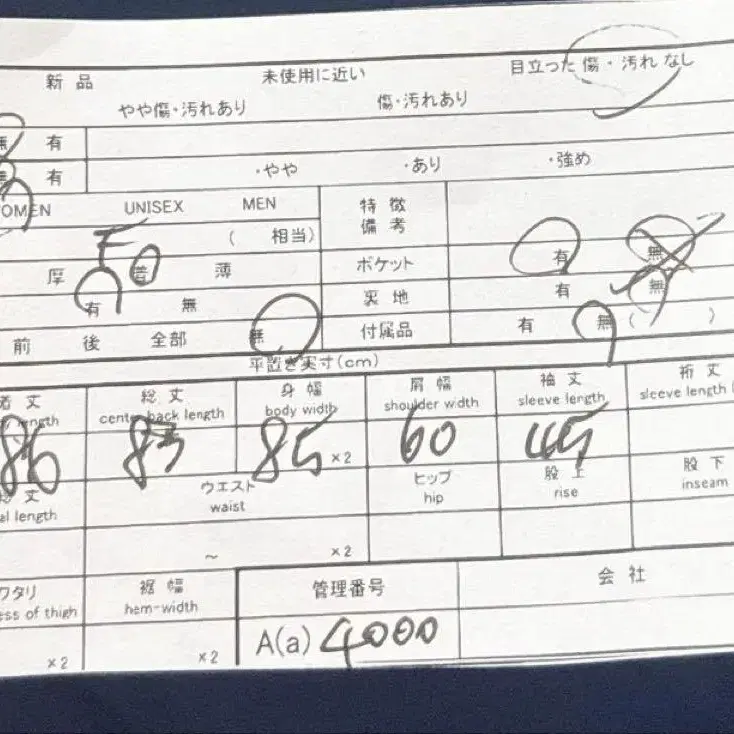 新品 未使用に近い 目立った傷・汚れなし
やや傷・汚れあり 傷・汚れあり
無 有
無 有 ・やや ・あり ・強め
OMEN UNISEX MEN 特徴
備考
F (相当)
厚 着 薄 ポケット 有 無
有 無 裏地 有 無
前 後 全部 無 付属品 有 無 ( )
平置き実寸(cm)
着丈 総丈 身幅 肩幅 袖丈 裄丈
length center back length body width shoulder width sleeve length sleeve length
86 83 85 ×2 60 45
総丈 ウエスト ヒップ 股上 股下
al length waist hip rise inseam
~ ×2
ワタリ 裾幅 管理番号 会社
ess of thigh hem-width
×2 ×2 A(a) 4000